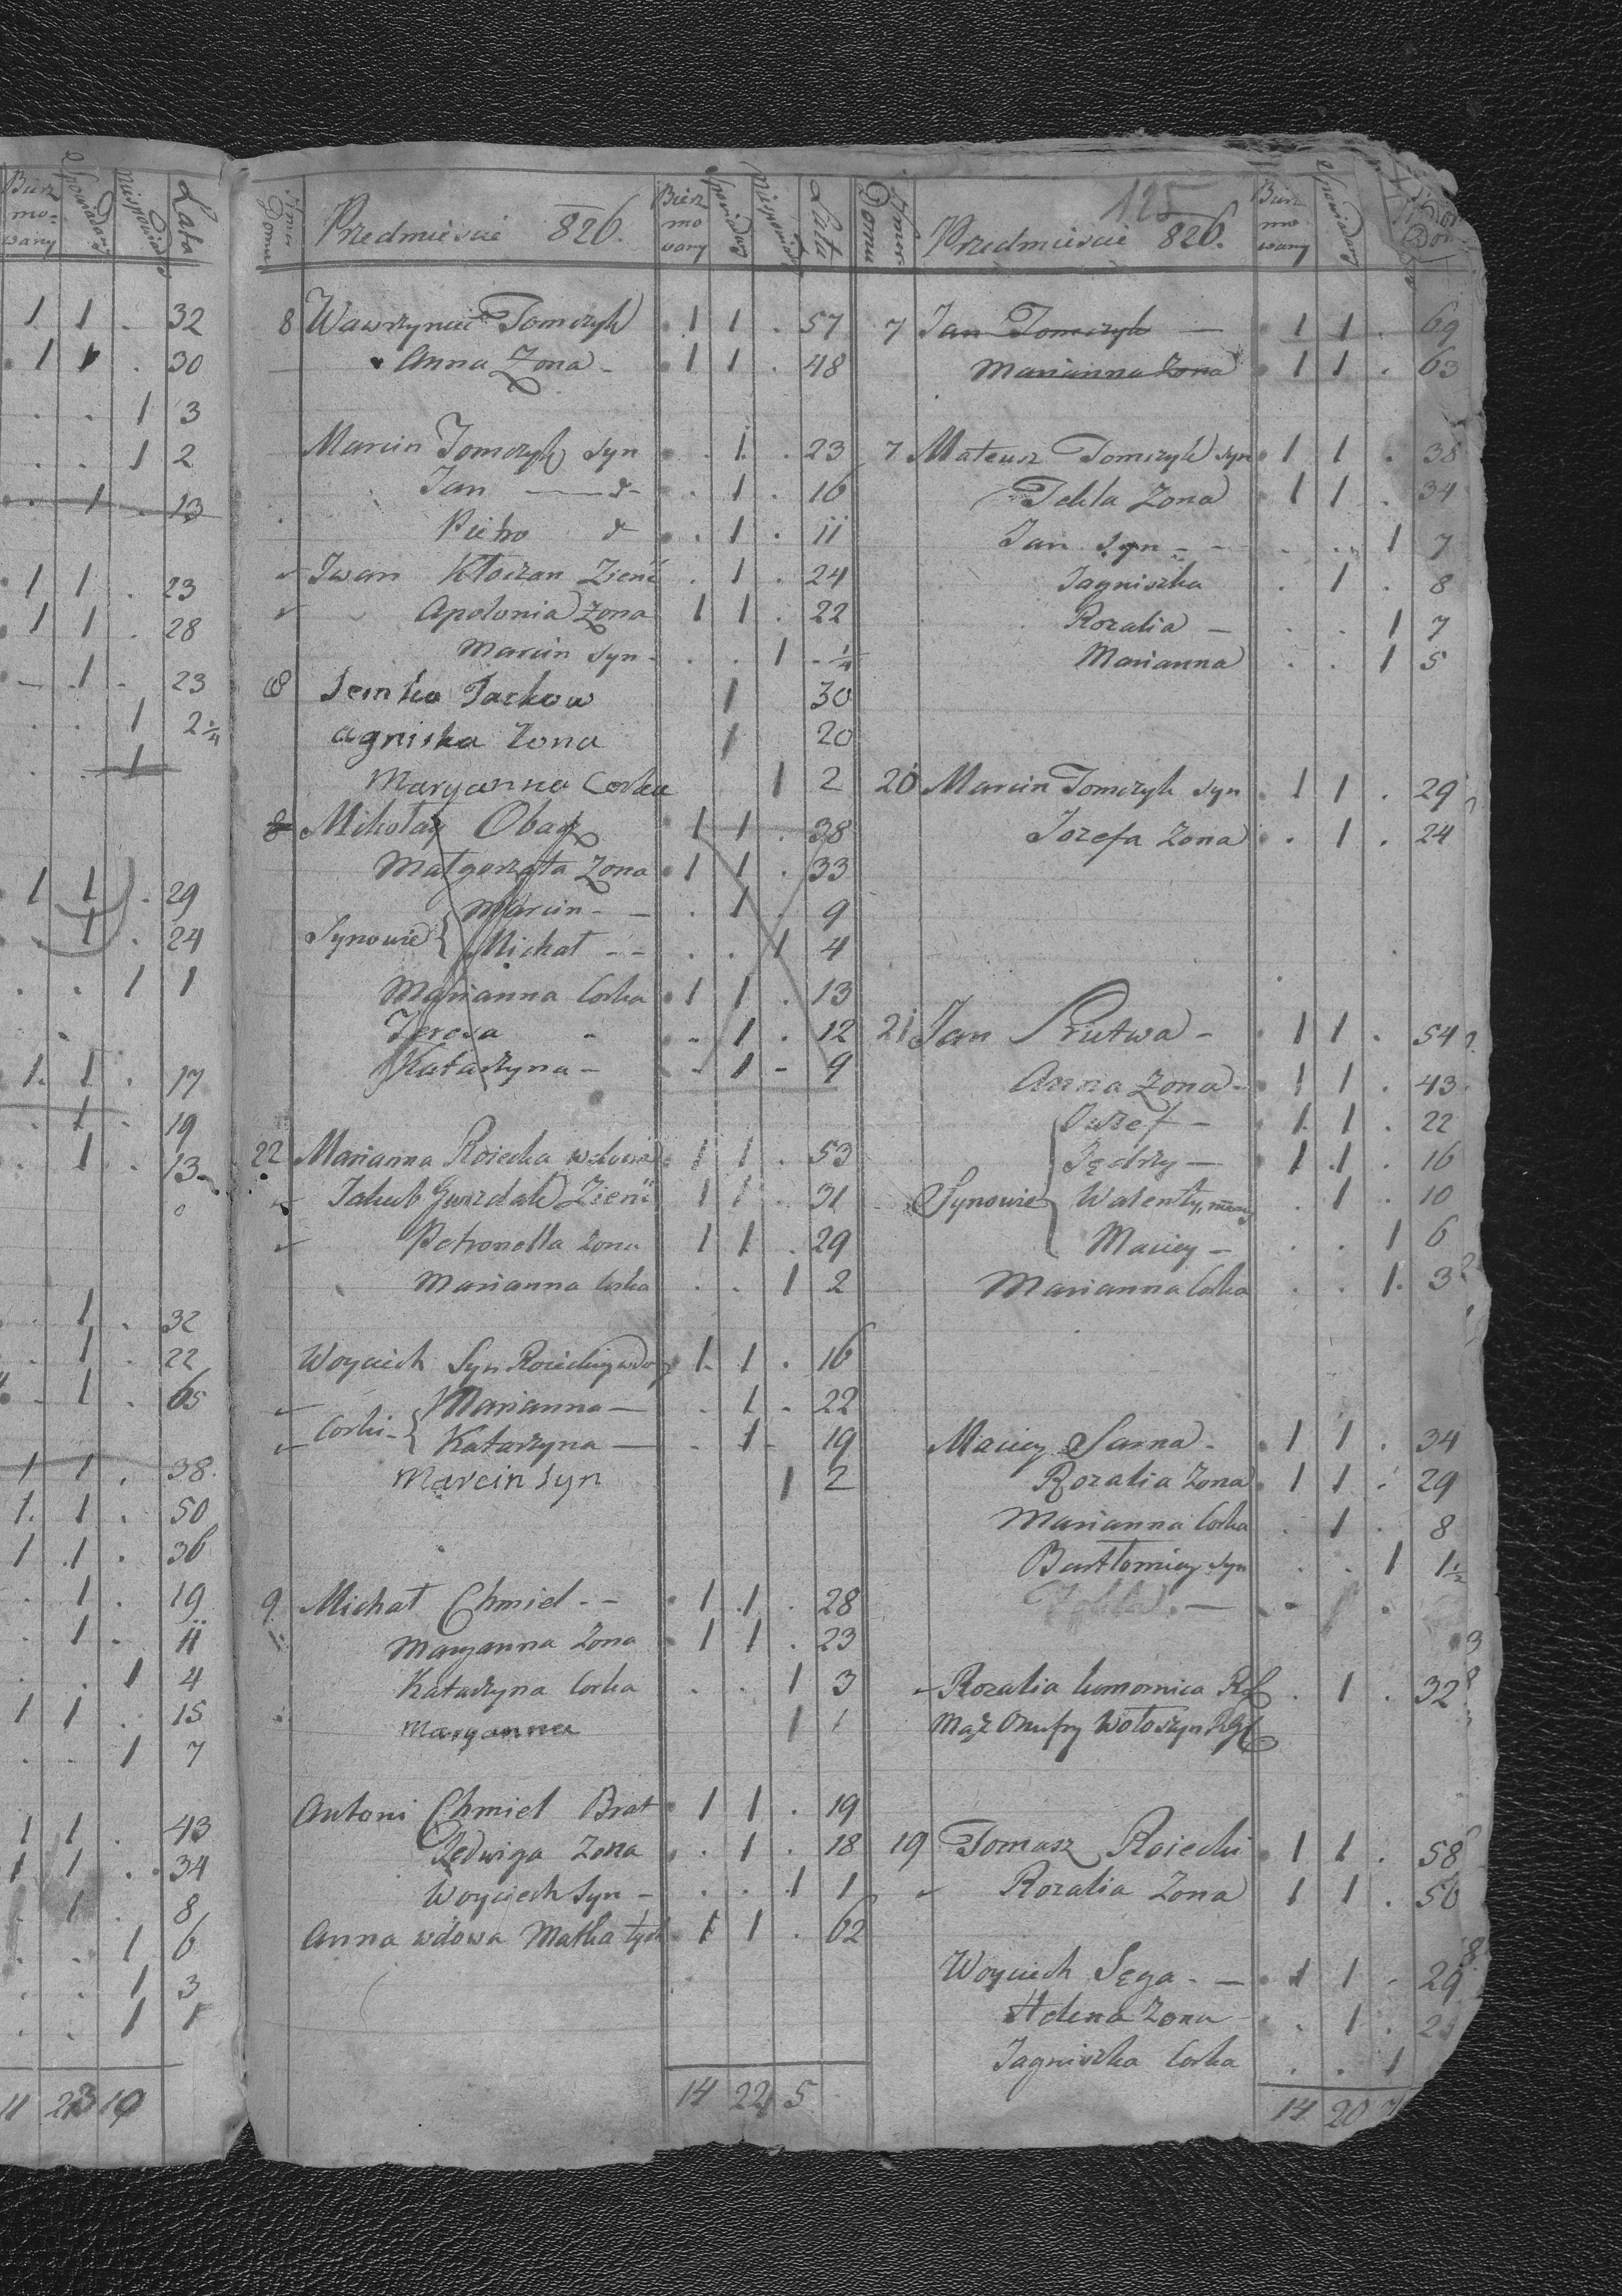 Bierz
mo-
wany
Spowiadany
Niespowiad
Lata
1 1 . 32
1 1 . 30
. . 1 3
. . 1 2
. 1 . 13
1 1 . 23
1 1 . 28
- 1 - 23
. . 1 2 1/4
. . 1
1 1 . 29
. 1 . 24
. . 1 1
1. 1 . 17
. 1 . 19
. 1 . 13
. 1 . 32
. 1 . 22
. 1 . 65
1 1 . 38.
1. 1 . 50
1 1 . 36
. 1 . 19
. 1 . 11
. . 1 4
1 1 . 15
. . 1 7
1 1 . 43
1 1 . 34
. 1 . 8
. . 1 6
. . 1 3
. . 1 1
11 23 19
Nmer Domu
Przedmiescie 826.
Bierz
mo
wany
Spowiadany
Niespowiad
Lata
8 Wawrzyniec Tomczyk . 1 1 . 57
Anna Zona - . 1 1 . 48
Marcin Tomczyk syn . . 1 . 23
Jan — d- . . 1 . 16
Pietro d . . 1 . 11
Iwan Kłoczan Zienć . 1 . 24
Apolonia Zona 1 1 . 22
Marcin syn - . . 1 - 1/4
8 Semko Jackow 1 30
agniska Zona 1 20
Maryanna Corka 1 2
8 Mikołay Obacz 1 1 . 38
Małgorzata Zona . 1 1 . 33
Synowie { Marcin - - . 1 . 9
Michał - - . . 1 4
Marianna Corka . 1 1 . 13
Teresa - . . 1 . 12
Katarzyna - . - 1 - 9
22 Marianna Rosiecka wdowa . 1 1 . 53
Jakub Gwozdak Zienć 1 1 . 31
Petronella Zona 1 1 . 29
Marianna Corka . . 1 2
Woyciech Syn Rosieckiy wdo . 1. 1 . 16
Corki - { Marianna — . 1 . 22
Katarzyna — . 1 - 19
Marcin syn 1 2
9 Michał Chmiel - - . 1 1 . 28
Maryanna Zona . 1 1 . 23
Katarzyna Corka . . 1 3
Maryanna 1 1
Antoni Chmiel Brat . 1 1 . 19
Jedwiga Zona . . 1 . 18
Woyciech syn - . . 1 1
Anna wdowa Matka tych . 1 1 . 62
14 22 5
Nmer Domu
125
Przedmiescie 826.
Bierz
mo
wany
Spowiadany
7 Jan Tomczyk — . 1 1 . 69
Marianna Zona . 1 1 . 63
7 Mateusz Tomczyk syn . 1 1 . 38
Tekla Zona 1 1 . 34
Jan syn - - . . 1 7
Jagniszka . 1 . 8
Rozalia — . . 1 7
Marianna . . 1 5
20 Marcin Tomczyk syn . 1 1 . 29
Jozefa Zona . . 1 . 24
21 Jan Prutwa - . 1 1 . 54
Anna Zona - . 1 1 . 43
Synowie { Jozef - . 1. 1 . 22
Jędrzy — 1 1 . 16
Walenty, . 1 . 10
Maciey - . . 1 6
Marianna Corka . . 1. 3
Maciey Sarna - . 1 1 . 34
Rozalia Zona . 1 1 . 29
Marianna Corka . 1 . 8
Bartłomiey syn . . 1 1 1/2
Rozalia komornica RG . 1 . 32
Mąż Onufry Wołoszyn RG
19 Tomasz Rosiecki . 1 1 . 58
Rozalia Zona 1 1 . 56
Woyciech Sęga - — . 1 1 . 29
Helena Zona . . 1 .
Jagniszka Corka . . 1
14 20